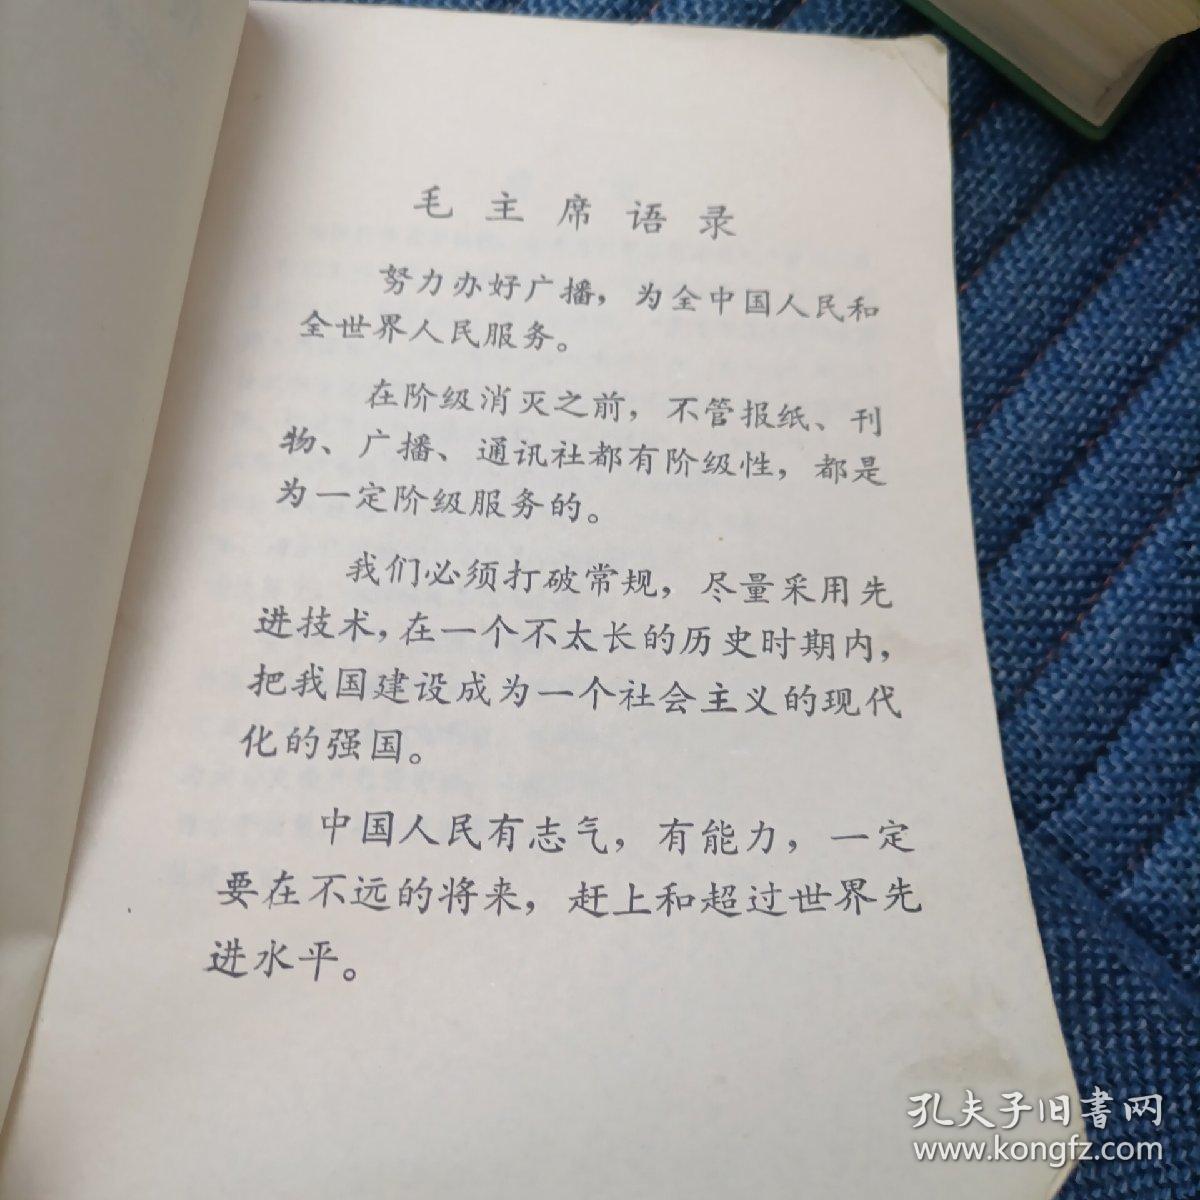 毛主席语录
努力办好广播，为全中国人民和
全世界人民服务。
在阶级消灭之前，不管报纸、刊
物、广播、通讯社都有阶级性，都是
为一定阶级服务的。
我们必须打破常规，尽量采用先
进技术，在一个不太长的历史时期内，
把我国建设成为一个社会主义的现代
化的强国。
中国人民有志气，有能力，一定
要在不远的将来，赶上和超过世界先
进水平。
孔夫子旧书网
www.kongfz.com